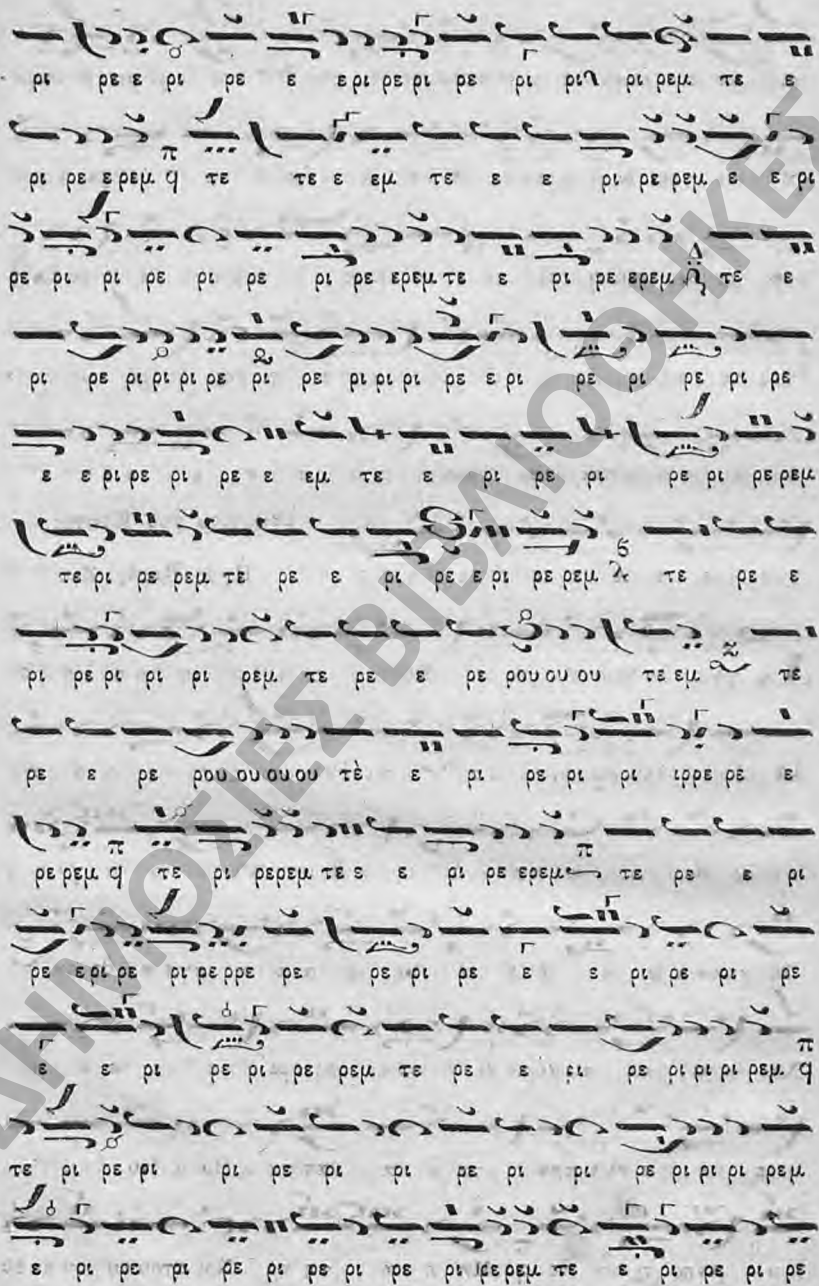 ρι ρε ε ρι ρε ε ε ρι ρε ρι ρε ρι ρι ρι ρεμ τε ε
ρι ρε ε ρεμ τε τε ε εμ τε ε ε ρι ρε ρεμ ε ε ρι
ρε ρι ρι ρε ρι ρε ρι ρε ερεμ τε ε ρι ρε ερεμ τε ε
ρι ρε ρι ρι ρι ρε ρι ρε ρι ρι ρι ρε ε ρι ρε ρι ρε ρι ρε
ε ε ρι ρε ρι ρε ε εμ τε ε ρι ρε ρι ρε ρι ρε ρεμ
τε ρι ρε ρεμ τε ρε ε ρι ρε ε ρι ρε ρεμ τε ρε ε
ρι ρε ρι ρι ρι ρεμ τε ρε ε ρε ρου ου ου τε εμ τε
ρε ε ρε ρου ου ου ου τε ε ρι ρε ρι ρε ρε ρι ρε ε
ρε ρεμ τε ρι ρε ρεμ τε ε ε ρι ρε ερεμ τε ρε ε ρι
ρε ε ρι ρε ρι ρε ρε ρε ρε ρι ρε ε ε ρι ρε ρι ρε
ε ε ρι ρε ρι ρε ρεμ τε ρε ε ρι ρε ρι ρι ρι ρεμ
τε ρι ρε ρι ρι ρε ρι ρι ρε ρι ρε ρε ρι ρι ρι ρεμ
ε ρι ρε ρι ρε ρε ρι ρε ρι ρε ρεμ τε ε ρι ρι ρε ρι ρε
ΔΗΜΟΣΙΕΣ ΒΙΒΛΙΟΘΗΚΕΣ